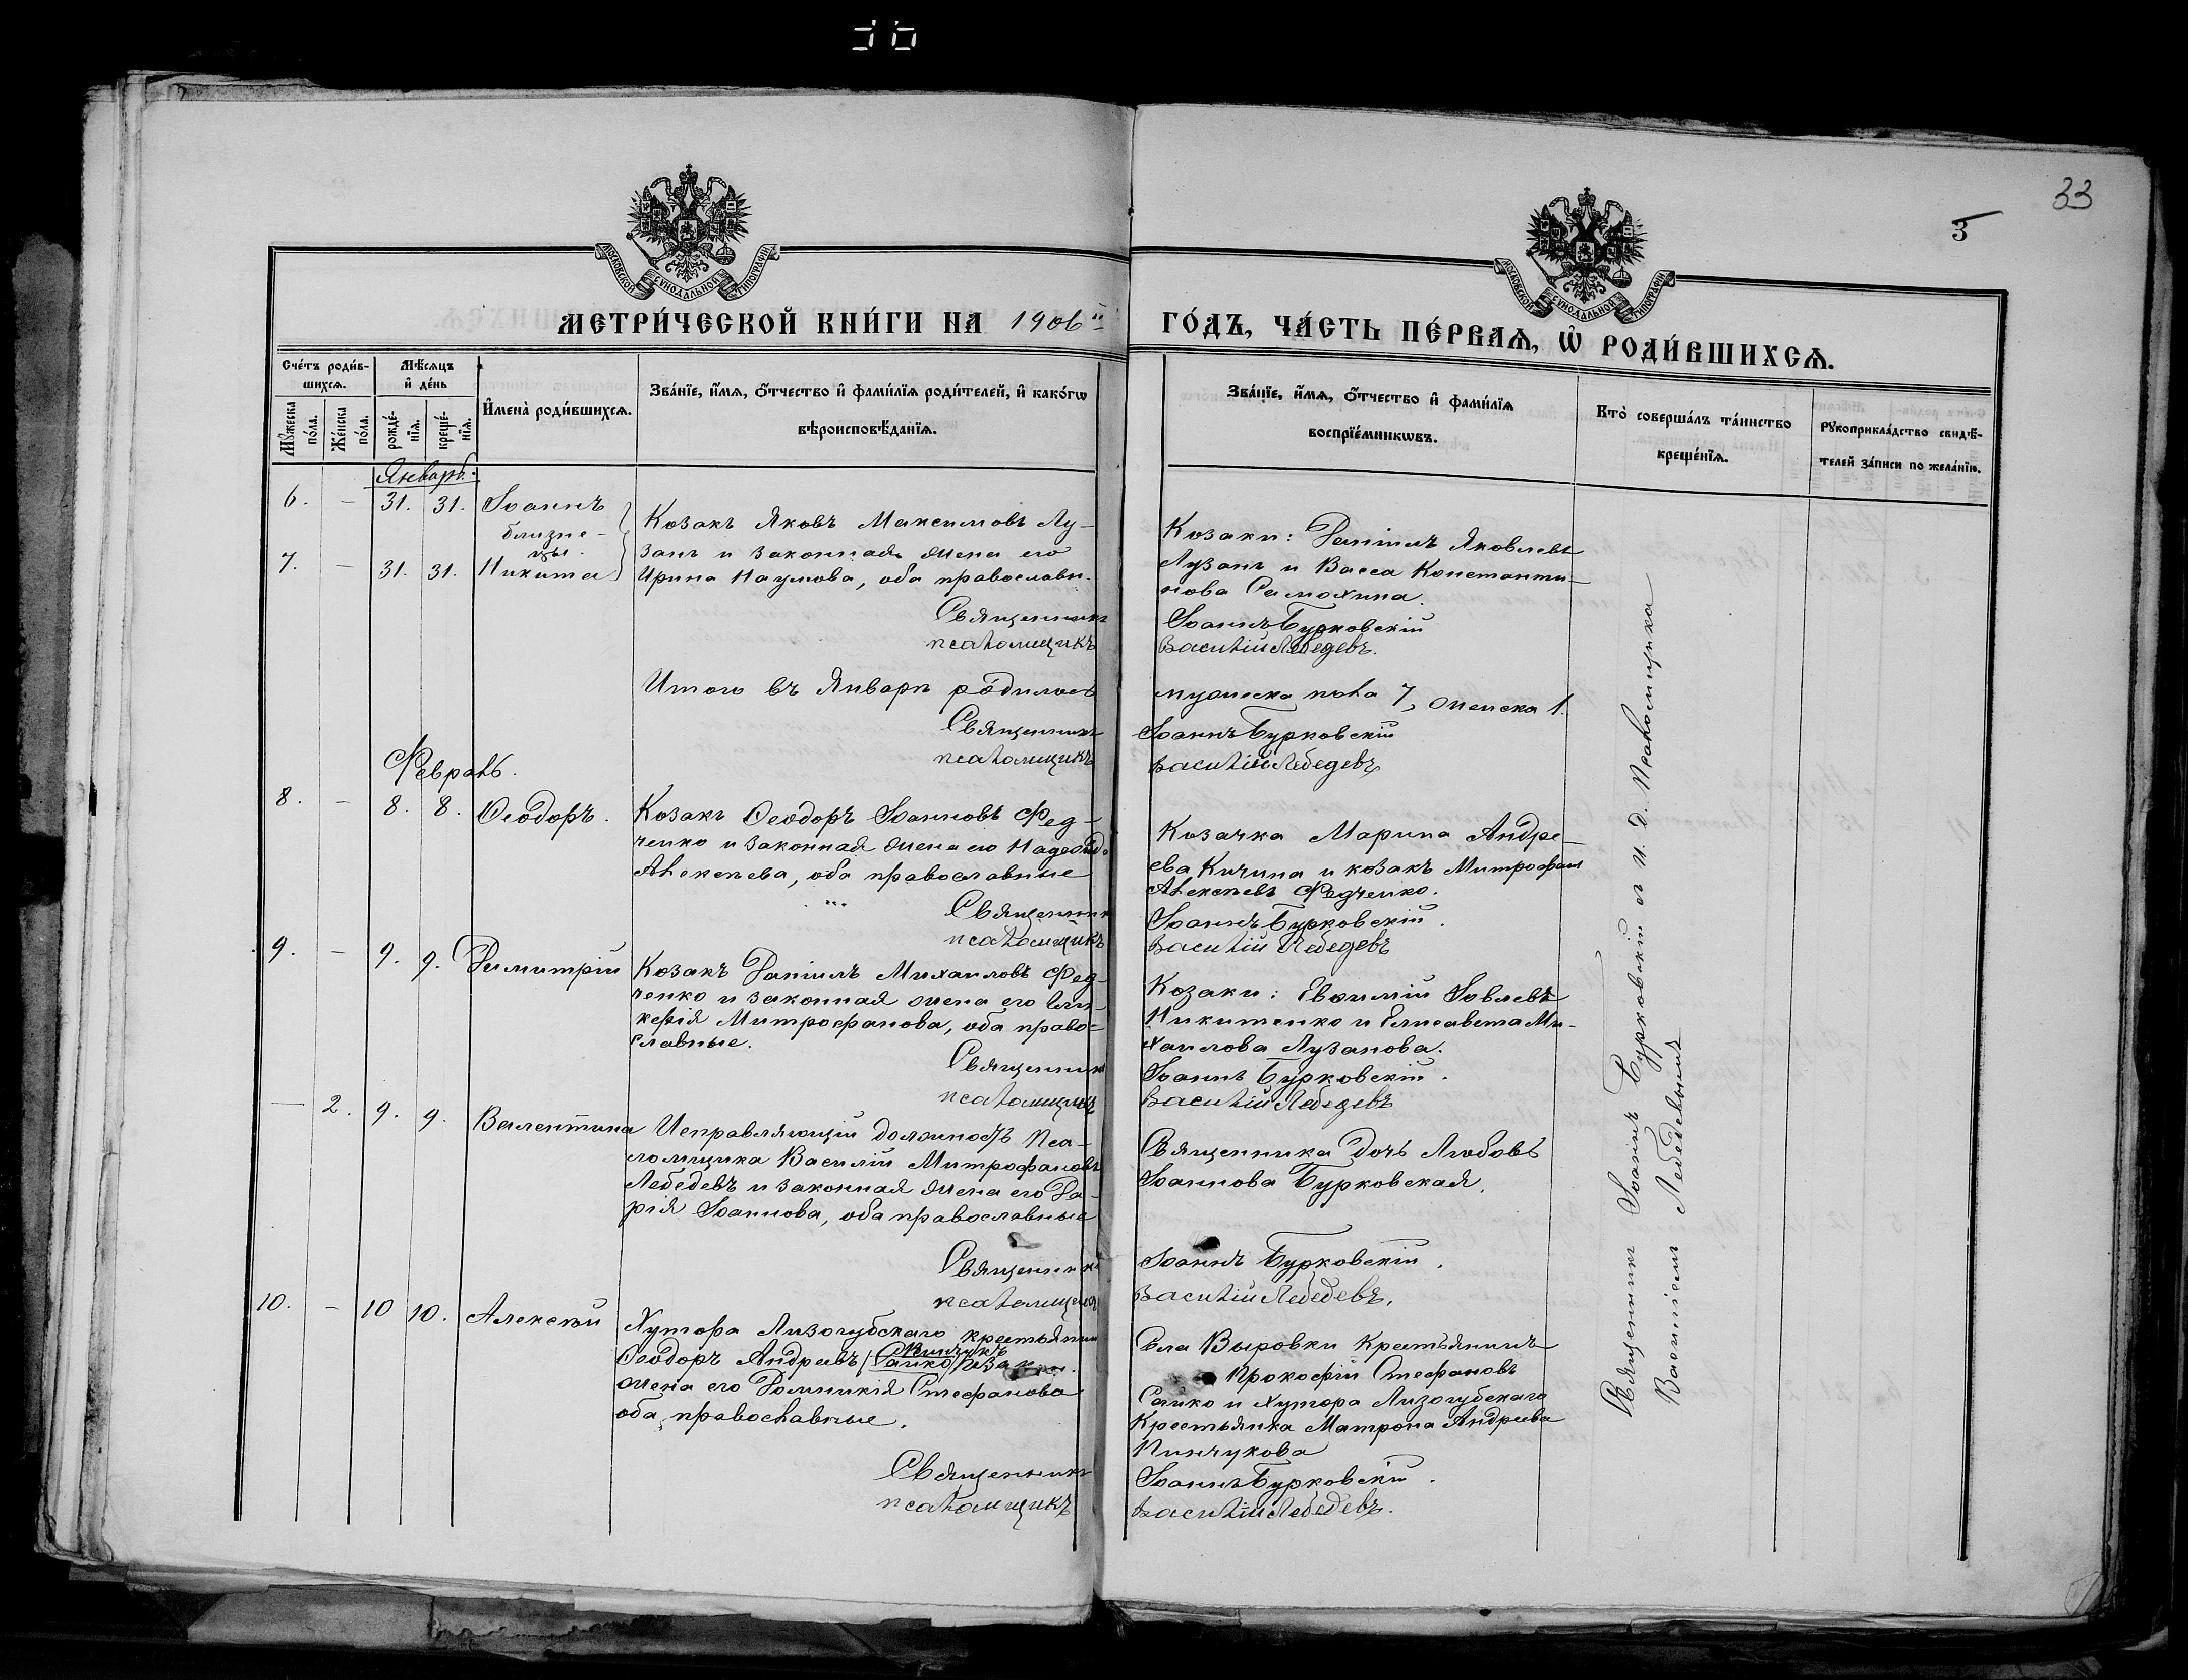 36
33
3
МОСКОВСКОЙ СУНОДАЛЬНОЙ ТИПОГРАФІИ
МОСКОВСКОЙ СУНОДАЛЬНОЙ ТИПОГРАФІИ
МЕТРИ́ЧЕСКОЙ КНИ́ГИ НА 1906й
ГО́ДЪ, ЧА́СТЬ ПЕ́РВАѦ, Ѿ РОДИ́ВШИХСѦ.
Сче́тъ роди́в-
шихсѧ.
Мꙋ́жеска по́ла.
Же́нска по́ла.
Мѣ́сѧцъ
и҆ де́нь
рожде́-
нїѧ.
креще́-
нїѧ.
И҆мена̀ роди́вшихсѧ.
Зва́нїе, и҆́мѧ, ѻ҆́тчество и҆ фами́лїѧ роди́телей, и҆ како́гѡ
вѣроисповѣ́данїѧ.
Зва́нїе, и҆́мѧ, ѻ҆́тчество и҆ фами́лїѧ
воспрїе́мникѡвъ.
Кто̀ соверша́лъ та́инство
креще́нїѧ.
Рꙋкоприкла́дство свидѣ́-
телей за́писи по жела́нїю.
Январь.
6. – 31. 31. Іоаннъ
близне-
цы.
7. – 31. 31. Никита
Козакъ Яковъ Максимовъ Лу-
занъ и законная жена его
Ирина Наумова, оба православн.
Священникъ
псаломщикъ
Козаки: Даніилъ Яковлевъ
Лузанъ и Васса Константи-
нова Самохина.
Іоаннъ Бурковскій
Василій Лебедевъ.
Итого въ Январѣ родилось
мужеска пола 7, женска 1.
Священникъ
псаломщикъ
Іоаннъ Бурковскій
Василій Лебедевъ
Февраль.
8. – 8. 8. Ѳеодоръ.
Козакъ Ѳеодоръ Іоанновъ Фед-
ченко и законная жена его Надежда
Алексѣева, оба православные
Священникъ
псаломщикъ
Козачка Марина Андре-
ева Кичина и козакъ Митрофанъ
Алексѣевъ Федченко.
Іоаннъ Бурковскій.
Василій Лебедевъ
9. – 9. 9. Димитрій
Козакъ Даніилъ Михаиловъ Фед-
ченко и законная жена его Гли-
керія Митрофанова, оба право-
славные.
Священникъ
псаломщикъ
Козаки: Евѳимій Іовлевъ
Никитенко и Елисавета Ми-
хаилова Лузанова.
Іоаннъ Бурковскій.
Василій Лебедевъ
– 2. 9. 9. Валентина
Исправляющій должность Пса-
ломщика Василій Митрофановъ
Лебедевъ и законная жена его Да-
рія Іоаннова, оба православные
Священникъ
псаломщикъ
Священника дочь Любовь
Іоаннова Бурковская.
Іоаннъ Бурковскій.
Василій Лебедевъ.
10. – 10 10. Алексѣй
Хутора Лизогубскаго крестьянин
Пинчукъ
Ѳеодоръ Андреевъ (Сайко) и закон.
жена его Домникія Стефанова
оба православные.
Священникъ
псаломщикъ
Села Выровки Крестьянинъ
Прокофій Стефановъ
Сайко и Хутора Лизогубскаго
Крестьянка Матрона Андреева
Пинчукова
Іоаннъ Бурковскій.
Василій Лебедевъ.
Священникъ Іоаннъ Бурковскій съ и. д. Псаломщика
Василіемъ Лебедевымъ